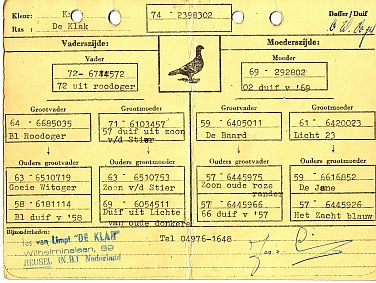 Kleur:
74 - 2398302
Doffer / Duif
Ras : De Klak
Vaderszijde:
Moederszijde:
Vader
72- 6714572
72 uit roodoger
Moeder
69 - 292802
02 duif v '69
Grootvader
64 - 6685035
Bl Roodoger
Grootmoeder
71 - 6103457
57 duif uit zoon
v/d Stier
Grootvader
59 - 6405011
De Baard
Grootmoeder
61 - 6420023
Licht 23
Ouders grootvader
63 - 6510719
Goeie Witoger
58 - 6181114
Bl duif v '58
Ouders grootmoeder
63 - 6510753
Zoon v/d Stier
69 - 6054511
Duif uit Lichte
van oude donkere
Ouders grootvader
57 - 6445975
Zoon oude roze
rander
57 - 6445966
66 duif v '57
Ouders grootmoeder
59 - 6616852
De Jone
57 - 6445926
Het Zacht blauw
Bijzonderheden:
Jos van Limpt "DE KLAK"
Wilhelminalaan, 99
REUSEL (N.B.) Nederland
Tel 04976-1648